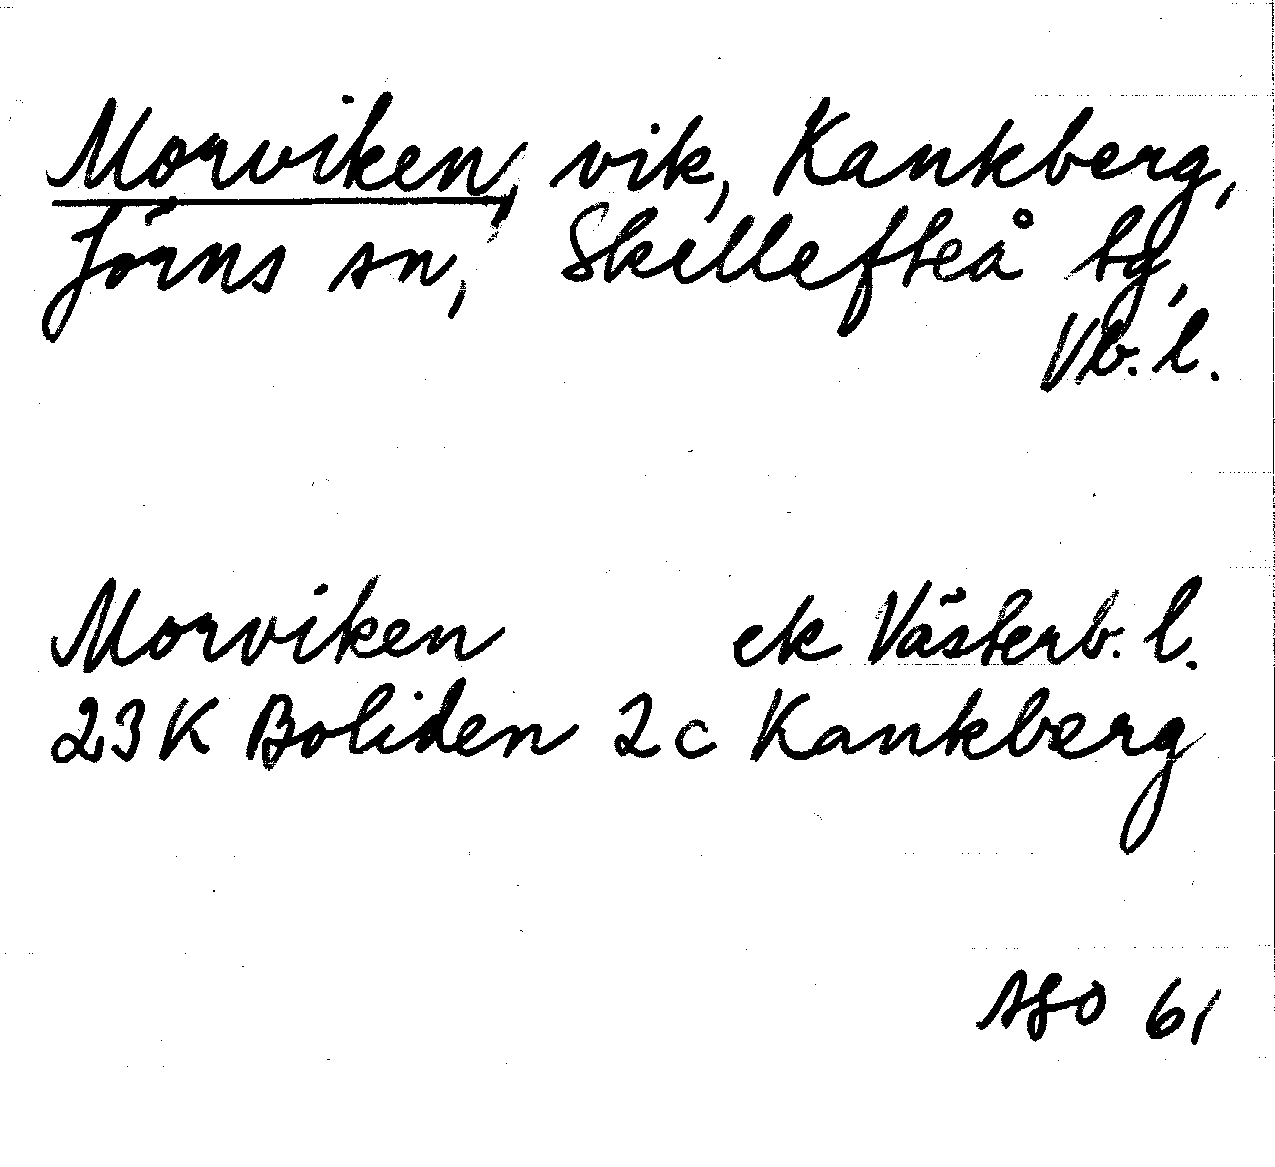 Morviken, vik, Kankberg,
Jörns sn, Skellefteå tg,
Vb. l.
Morviken ek Västerb. l.
23 K Boliden 2 c Kankberg
61